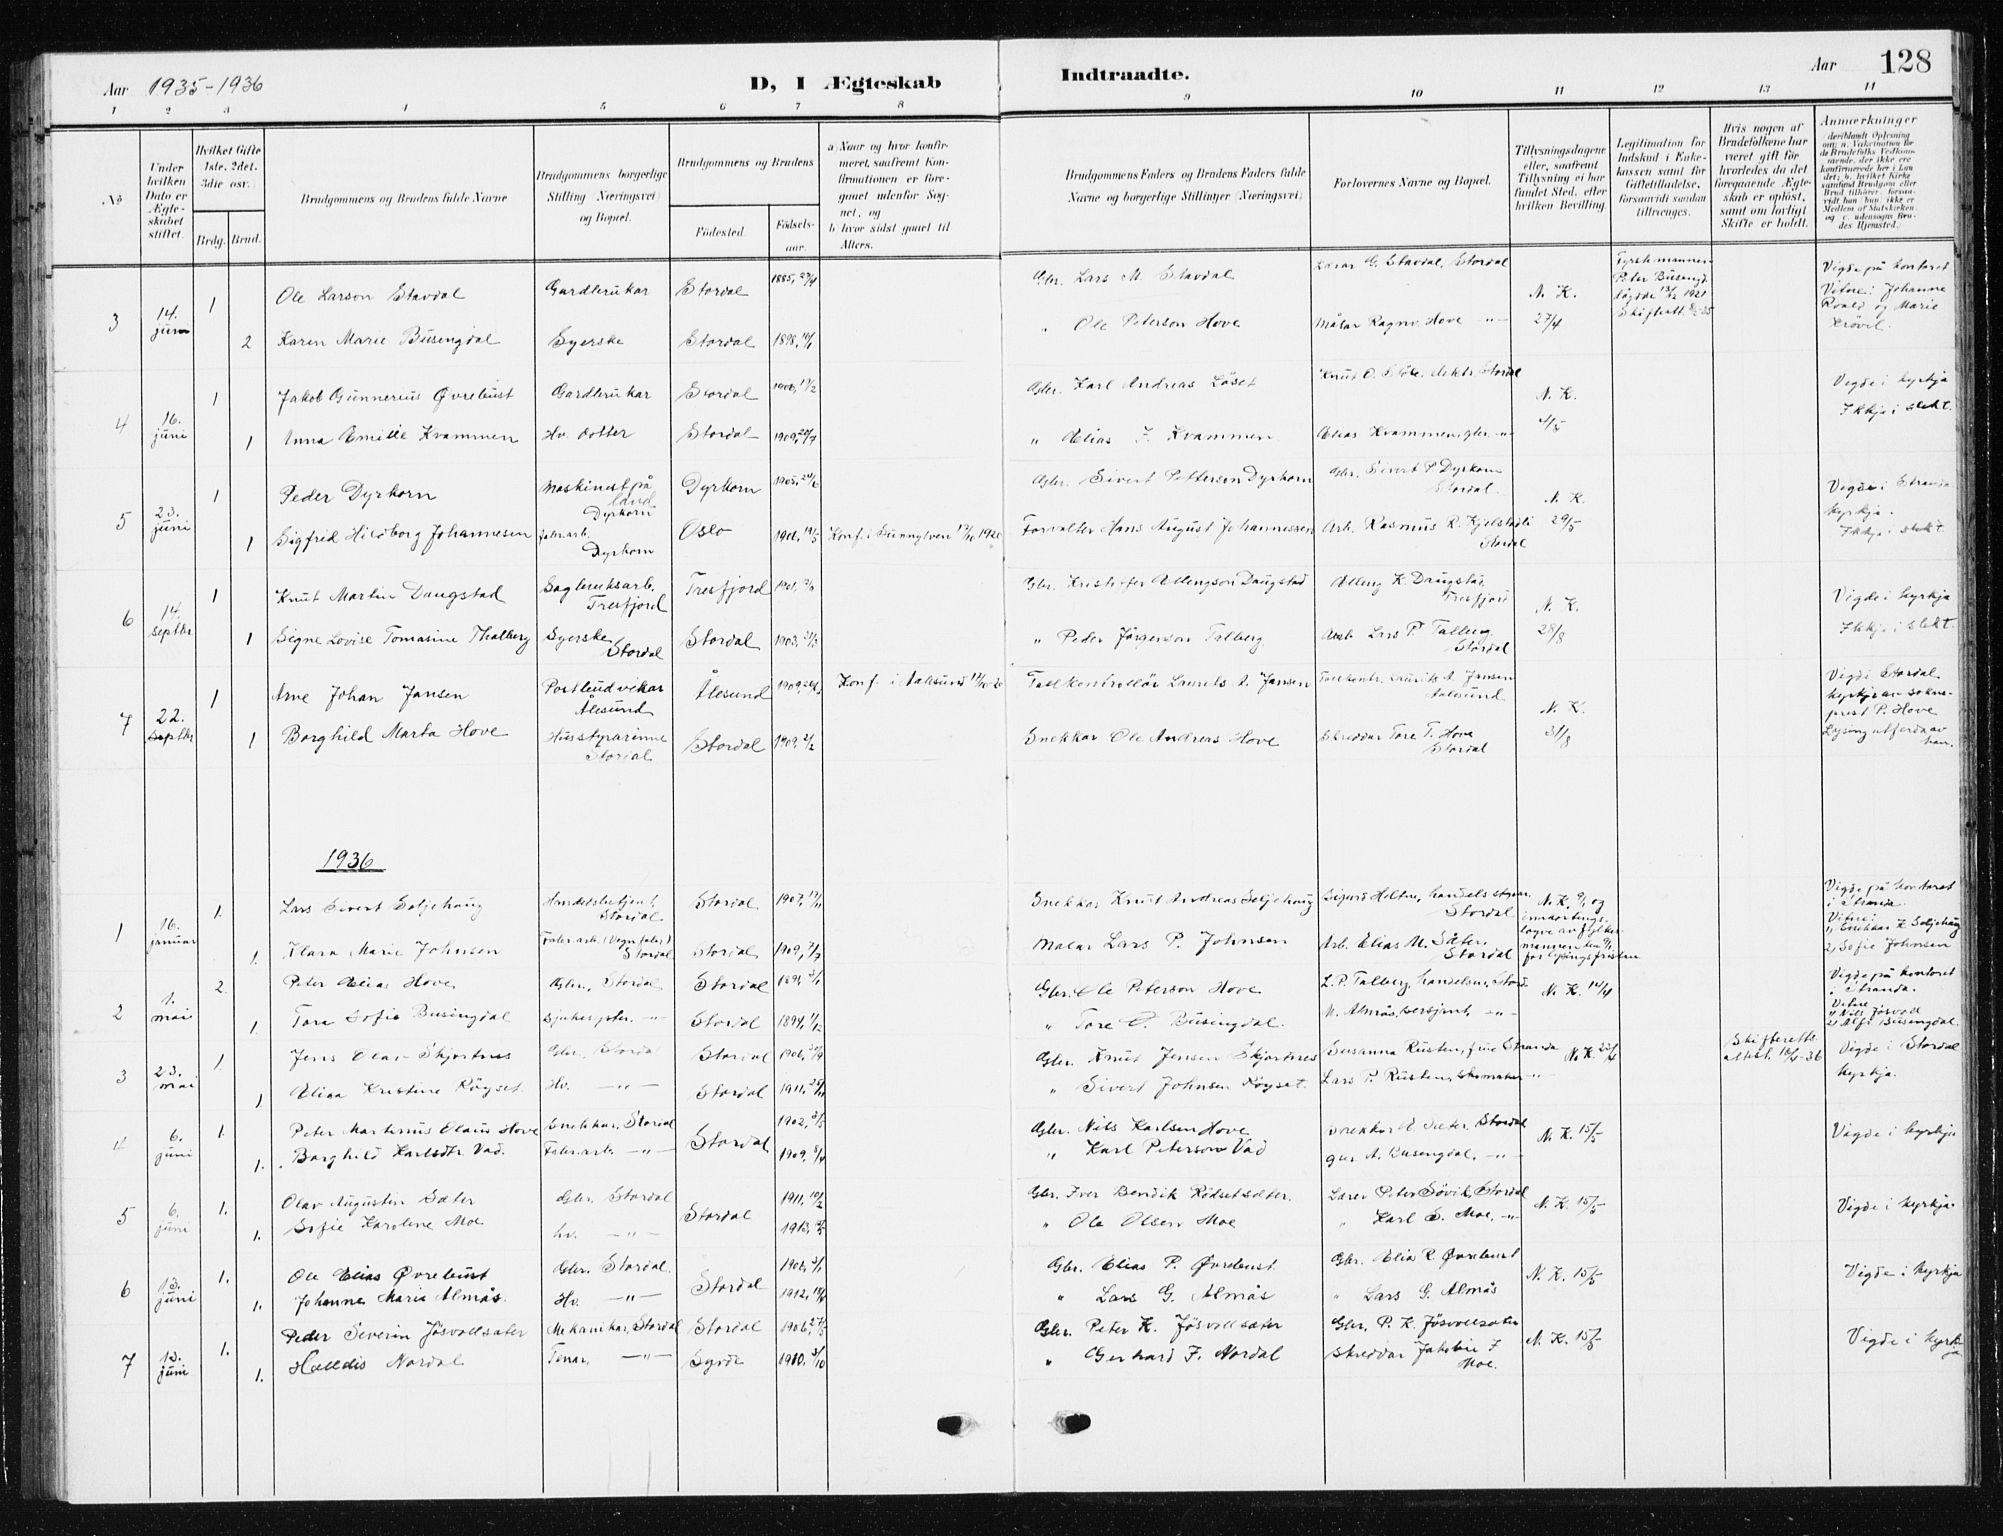 Aar 1935-1936
D, I Ægteskab Indtraadte.
Aar 128
1 2 3 4 5 6 7 8 9 10 11 12 13 14
№
Under hvilken Dato er Ægteskabet stiftet.
Hvilket Gifte 1ste. 2det. 3die osv.
Brdg. Brud.
Brudgommens og Brudens fulde Navne
Brudgommens borgerlige Stilling (Næringsvei) og Bopæl.
Brudgommens og Brudens
Fødested.
Fødselsaar.
a) Naar og hvor konfirmeret, saafremt Konfirmationen er foregaaet udenfor Sognet, og
b) hvor sidst gaaet til Alters.
Brudgommens Faders og Brudens Faders fulde Navne og borgerlige Stillinger (Næringsvei)
Forlovernes Navne og Bopæl.
Tillysningsdagene eller, saafremt Tillysning ei har fundet Sted, efter hvilken Bevilling.
Legitimation for Indskud i Enkekassen samt for Giftetilladelse, forsaavidt saadan tiltrænges.
Hvis nogen af Brudefolkene har været gift før hvorledes da det foregaaende Ægteskab er opløst, samt om lovligt Skifte er holdt.
Anmærkninger
3 14. juni 1 Ole Larson Stavdal Gardbrukar Stordal 1885, 27/4 Gbr. Lars M. Stavdal Lærar G. Stavdal, Stordal N. K. 27/4
Fyrste mannen Peter Busengd. døydde 13/12 1921 Skiftatt. 8/5-35
Vigde på kontoret Vitne: Johanne Roald og Marie Krøvil.
2 Karen Marie Busengdal Syerske Stordal 1898, " Ole Peterson Hove Målar Ragnv. Hove -"-
4 16. juni 1 Jakob Gunnerius Øvrebust Gardbrukar Stordal Gbr. Karl Andreas Løset N. K. 4/5 Vigde i kyrkja Ikkje i slekt.
1 Anna Emilie Kvammen Hv. dotter Stordal 1909, 20/7 " Elias J. Kvammen Elias Kvammen, gbr. -"-
5 23. juni 1 Peder Dyrkorn Maskinist på land Dyrkorn Dyrkorn 1905, 24/6 Gbr. Sivert Petterson Dyrkorn Gbr. Sivert P Dyrkorn Stordal. N. K. 29/5 Vigde i Stranda kyrkja. Ikkje i slekt.
1 Sigfrid Hildborg Johannesen fabr.arb. Dyrkorn Oslo Konf. i Sunnylven 17/10 1920 Forvalter Hans August Johannessen Arb. Rasmus R. Kjelstadli Stordal
6 14. septbr 1 Knut Martin Daugstad Sagbruksarb. Tresfjord Tresfjord Gbr. Kristofer Ellengson Daugstad Elling K. Daugstad, Tresfjord N. K. 28/8 Vigde i kyrkja Ikkje i slekt.
1 Signe Lovise Tomasine Thalberg Syerske Stordal Stordal 1903, 21/3 " Peder Jørgenson Talberg. Arb. Lars P. Talberg. Stordal
7 22. septbr 1 Arne Johan Jansen Postbudvikar Ålesund Ålesund Konf. i Aalesund Tollkontrollør Laurits A. Jansen Tollkontr. Laurits A. Jansen Aalesund N. K. 31/8
Vigd i Stordal kyrkja av sokneprest P. Hove Lysing utferda av han.
1 Borghild Marta Hove Husstyrarinne Stordal Stordal 1909, 2/2 Snekkar Ole Andreas Hove Skreddar Tore T. Hove Stordal
1936
1 16. januar 1. Lars Sivert Seljehaug Handelsbetjent, Stordal Stordal 1907, 17/11 Snekkar Knut Andreas Seljehaug Sigurd Holten, handelsstyrar Stordal N. K. 9/1 og innkortingsløyve av fylkesmannen for lysingsfristen
Vigde på kontoret i Stranda. Vitne: 1) Snekkar K Seljehaug 2) Sofie Johnsen
1. Klara Marie Johnsen Fabr.arb. Stordal Stordal 1909, 7/7 Målar Lars P. Johnsen Arb. Elias M. Sæter. Stordal
2 1. mai 2. Peter Elias Hove Gbr., Stordal Stordal Gbr. Ole Peterson Hove L. P. Talberg, handelsm., Stord. N. K. 14/4
Vigde på kontoret i Stranda. Vitne: 1) Nils Jøsvoll 2) Alfr Busengdal
1. Tora Sofie Busingdal Sjukesyster, -"- Stordal 1894, 11/12 " Tore O. Busingdal. M. Almås, bersjent, -"-
3 23. mai 1. Jens Olav Skjortnes Gbr., Stordal Stordal Gbr. Knut Jensen Skjortnes Susanna Rusten, frue Stranda N. K. Skifteretts attest. Vigde i Stordal kyrkja.
1 Elina Kristine Røyset. Hv. -"- Stordal 1911, " Sivert Johnsen Røyset. Lars P. Rusten, skomaker -"-
4 6. juni 1. Peter Martinus Olaus Hove Snekkar, Stordal Stordal 1902, 3/5 Gbr. Nils Karlsen Hove Snekkar Sæter, Stordal N. K. 15/5 Vigde i kyrkja
1. Borghild Karlsdtr. Vad. Fabr.arb. -"- 1909, 8/4 " Karl Peterson Vad A. Busengdal, -"-
5 6. juni 1. Olav Augustin Sæter Gbr. Stordal Stordal 1911, 10/2 Gbr. Iver Bendik Rødsetsæter. Lærer Peter Søvik, Stordal N. K. 15/5 Vigde i kyrkja
1. Sofie Karoline Moe hv. -"- " Ole Olsen Moe " Karl E. Moe, -"-
6 13. juni 1. Ole Elias Øvrebust Gbr. Stordal. Stordal Gbr. Elias P. Øvrebust Gbr. Elias P. Øvrebust N. K. 15/5 Vigde i kyrkja
1. Johanne Maria Almås. Hv. -"- 1912, " Lars G. Almås " Lars G. Almås
7 13. juni 1. Peder Severin Jøsvollsæter Mekanikar, Stordal Stordal 1906, 27/5 Gbr. Peter K. Jøsvollsæter Gbr. P. K. Jøsvollsæter N. K. 15/5 Vigde i kyrkja
1. Halldis Nordal -"- Syvde 1910, 3/10 " Gerhard F. Nordal Skreddar Jakobin F Moe.